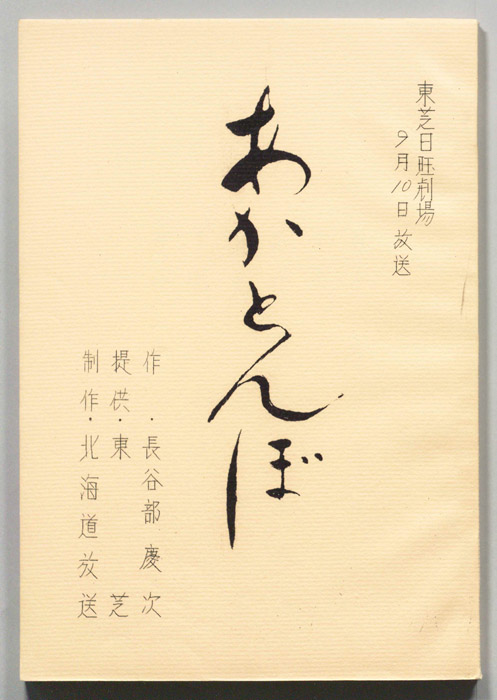 東芝日曜劇場
9月10日放送
あかとんぼ
作・長谷部慶次
提供・東芝
制作・北海道放送